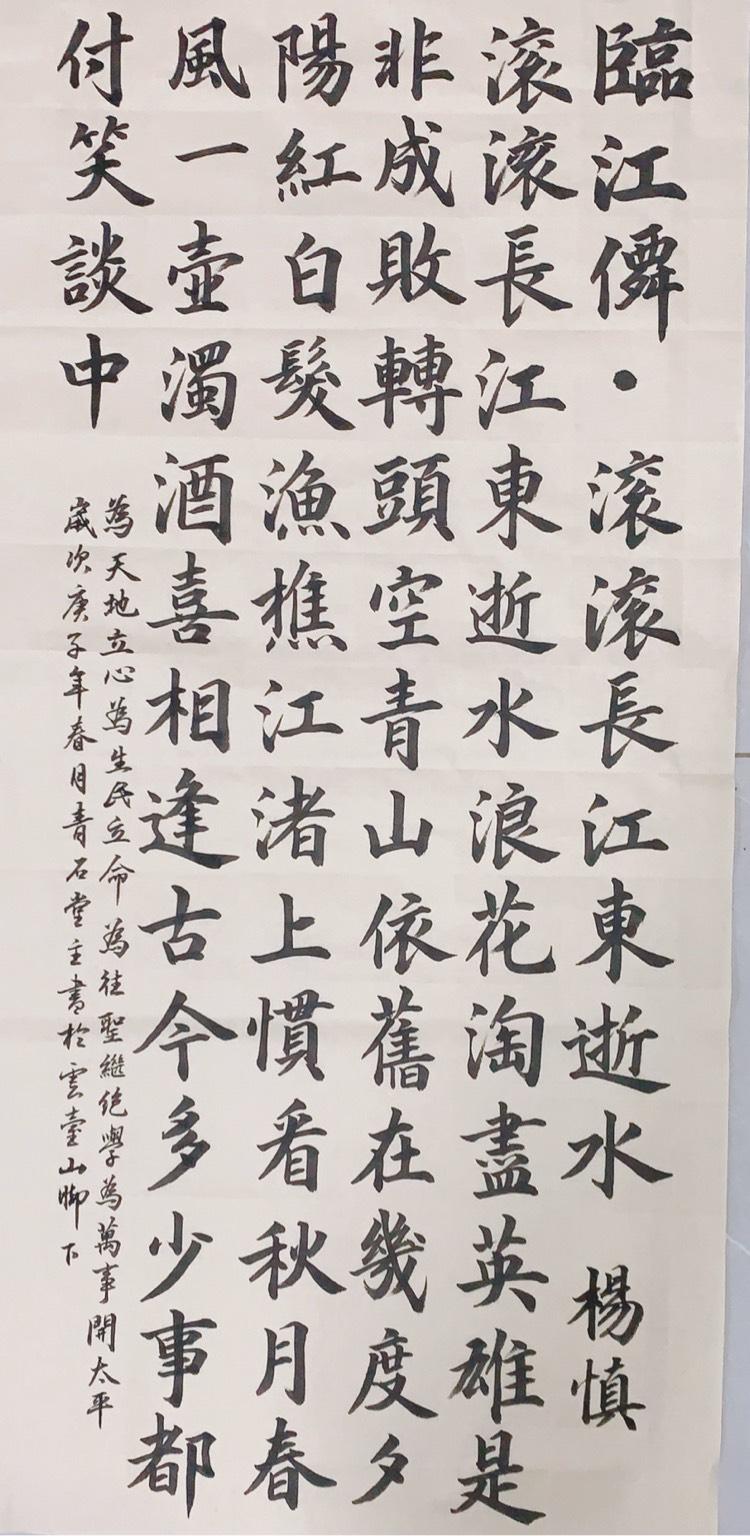 臨江僊·滚滚長江東逝水 楊慎
滚滚長江東逝水浪花淘盡英雄是
非成敗轉頭空青山依舊在幾度夕
陽紅白髮漁樵江渚上慣看秋月春
風一壺濁酒喜相逢古今多少事都
付笑談中
為天地立心為生民立命為往聖繼绝學為萬事開太平
歲次庚子年春月青石堂主書於雲臺山脚下